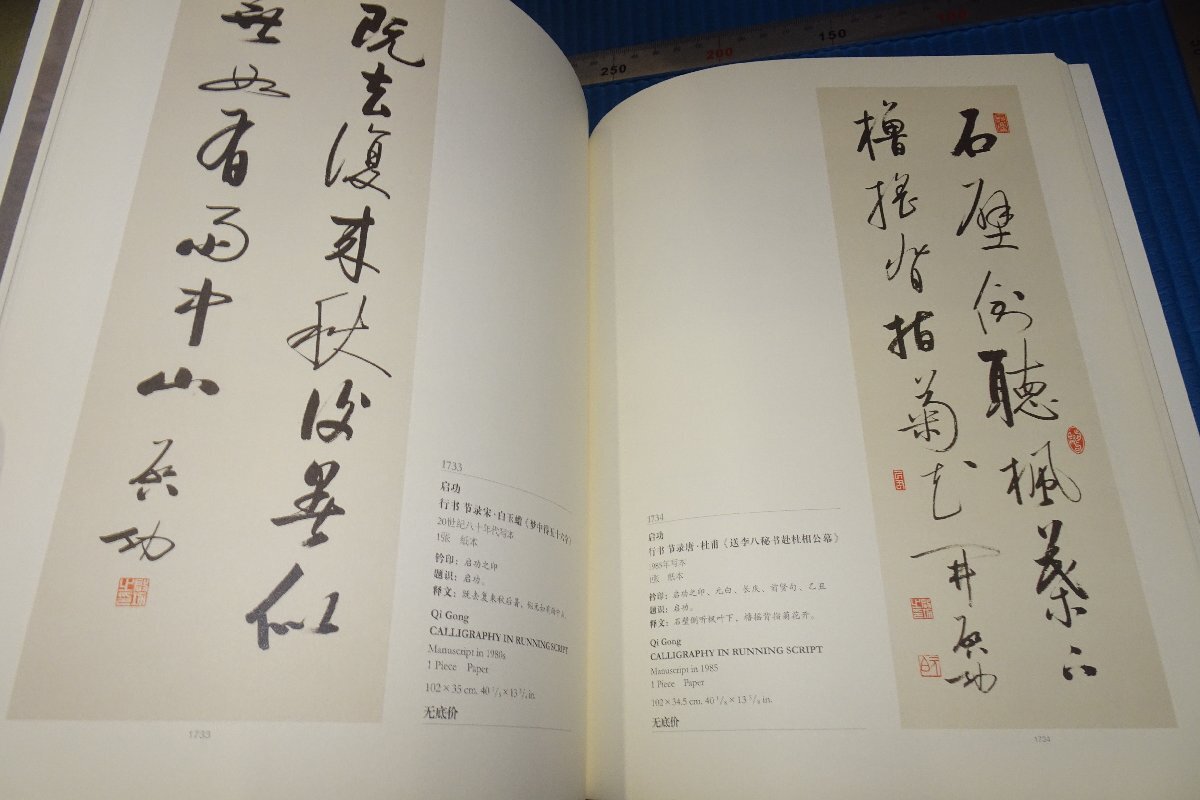 既去復来秋後暑似
無如有雨中山
启功
1733
启功
行书 节录宋·白玉蟾《梦中得五十六字》
20世纪八十年代写本
1张 纸本
钤印：启功之印
题识：启功。
释文：既去复来秋后暑，似无如有雨中山。
Qi Gong
CALLIGRAPHY IN RUNNING SCRIPT
Manuscript in 1980s
1 Piece Paper
102×35 cm. 40 1/8×13 3/4 in.
无底价
1733
石壁倒聽楓葉下
櫓搖背指菊花開
启功
1734
启功
行书 节录唐·杜甫《送李八秘书赴杜相公幕》
1985年写本
1张 纸本
钤印：启功之印、元白、长庆、前贤句、乙丑
题识：启功。
释文：石壁倒听枫叶下，橹摇背指菊花开。
Qi Gong
CALLIGRAPHY IN RUNNING SCRIPT
Manuscript in 1985
1 Piece Paper
102×34.5 cm. 40 1/8×13 5/8 in.
无底价
1734
250
200
150
100